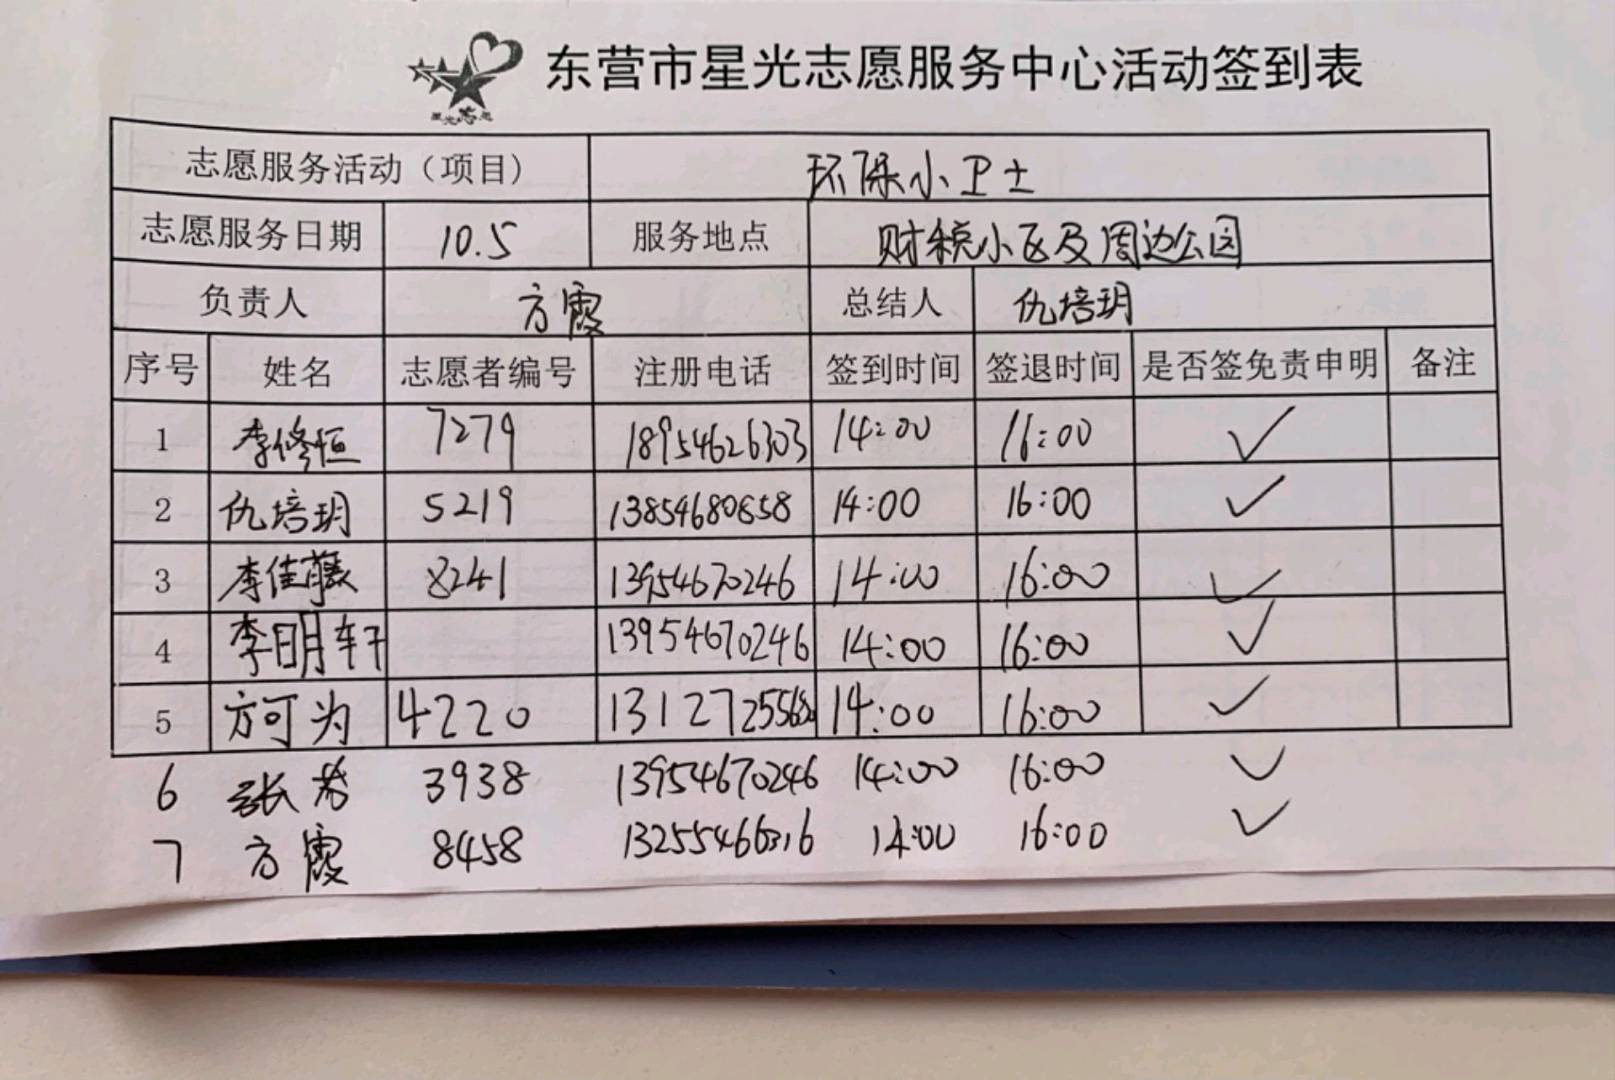 东营市星光志愿服务中心活动签到表
星光志愿
志愿服务活动（项目） 环保小卫士
志愿服务日期 10.5 服务地点 财税小区及周边公园
负责人 方霞 总结人 仇培玥
序号 姓名 志愿者编号 注册电话 签到时间 签退时间 是否签免责申明 备注
1 李修恒 7279 18954626303 14:00 16:00 ✓
2 仇培玥 5219 13854680658 14:00 16:00 ✓
3 李佳 8241 13954670246 14:00 16:00 ✓
4 李明轩 13954670246 14:00 16:00 ✓
5 方可为 4220 14:00 16:00 ✓
6 张 3938 13954670246 14:00 16:00 ✓
7 方霞 8458 13255466316 14:00 16:00 ✓